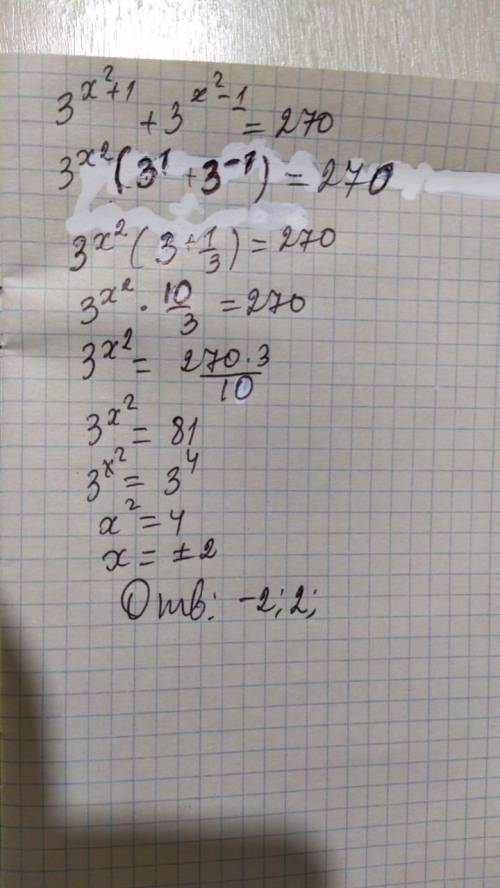 3^{x^2+1} + 3^{x^2-1} = 270
3^{x^2}(3^1 + 3^{-1}) = 270
3^{x^2}(3 + \frac{1}{3}) = 270
3^{x^2} \cdot \frac{10}{3} = 270
3^{x^2} = \frac{270 \cdot 3}{10}
3^{x^2} = 81
3^{x^2} = 3^4
x^2 = 4
x = ±2
Отв: -2; 2;